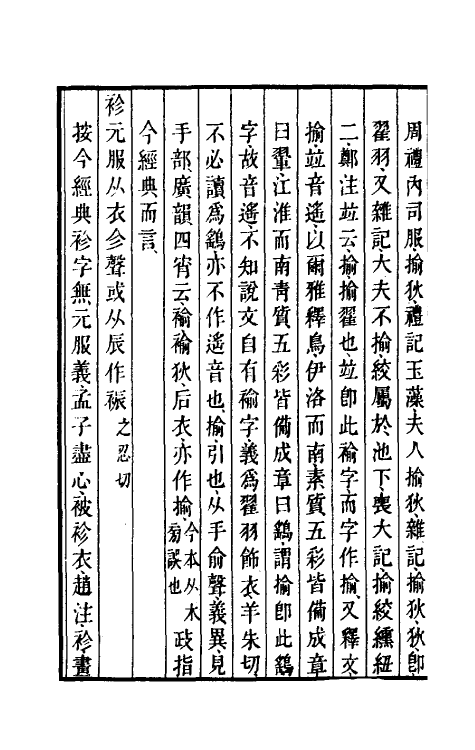 周禮內司服揄狄禮記玉藻夫人揄狄雜記揄狄狄卽
翟羽又雜記大夫不揄絞屬於池下喪大記揄絞纁紐
二鄭注竝云揄揄翟也竝卽此褕字而字作揄又釋文
揄竝音遙以爾雅釋鳥伊洛而南素質五彩皆備成章
曰翬江淮而南靑質五彩皆備成章曰鷂謂揄卽此鷂
字故音遙不知說文自有褕字義爲翟羽飾衣羊朱切
不必讀爲鷂亦不作遙音也揄引也从手俞聲義異見
手部廣韻四宵云褕褕狄后衣亦作揄今本从木旁誤也 政指
今經典而言
袗元服从衣㐱聲或从辰作裖之忍切
按今經典袗字無元服義孟子盡心被袗衣趙注袗畫